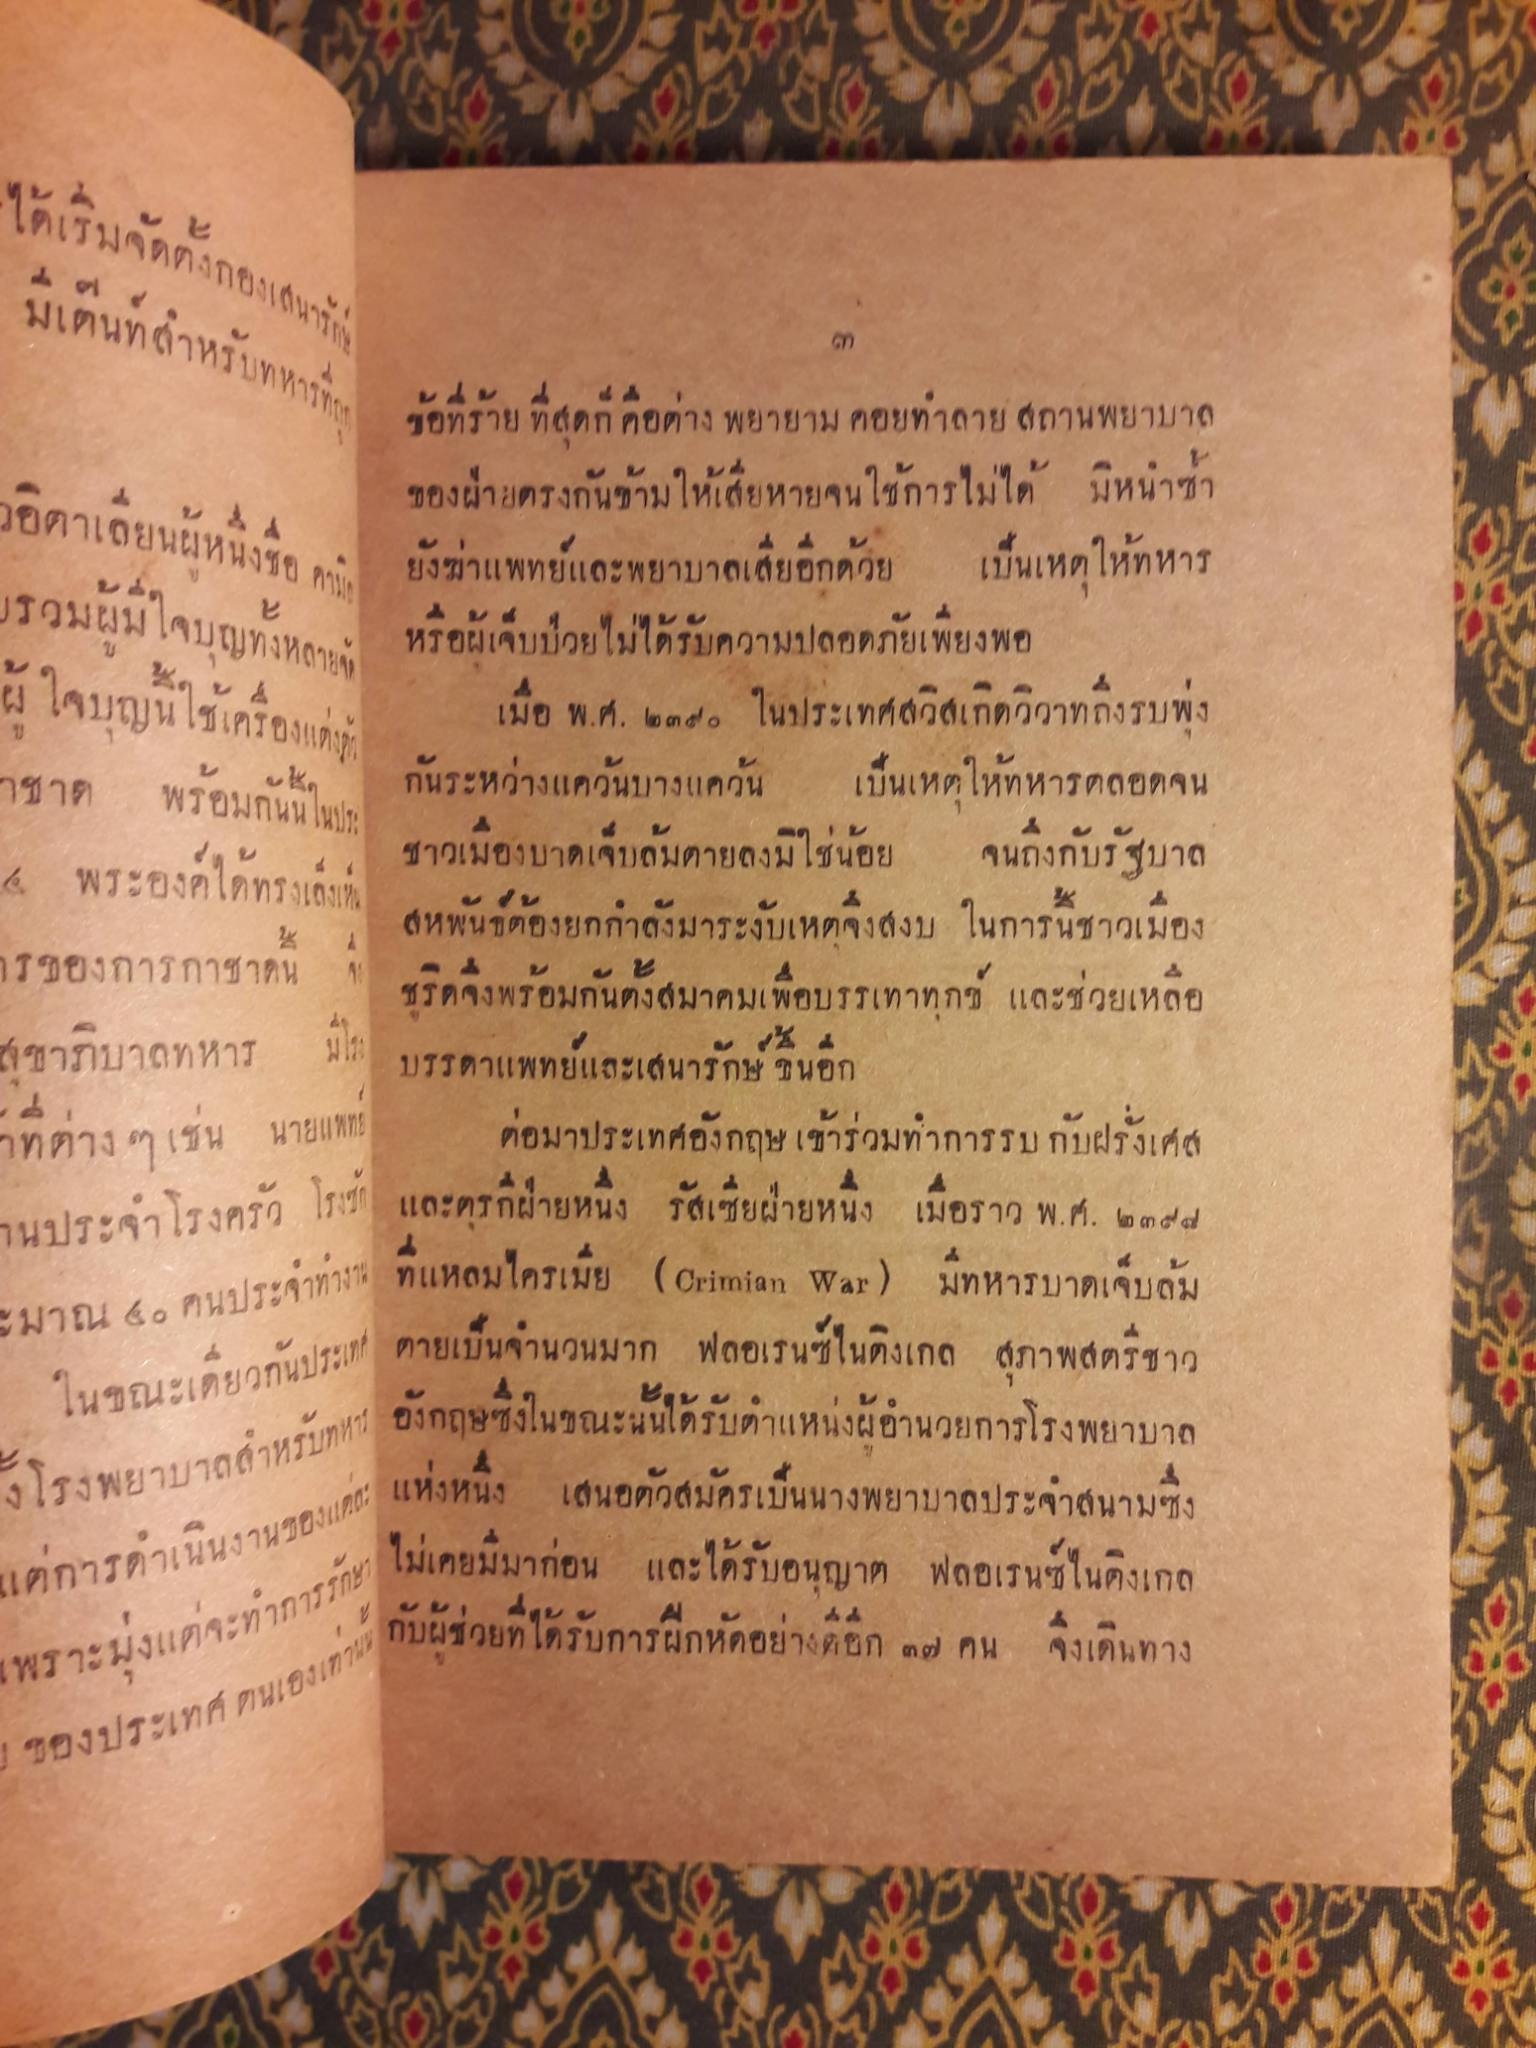 ได้เริ่มจัดตั้งกองเสนารักษ์
มีเต๊นท์สำหรับทหารที่ถูก
อิตาเลียนผู้หนึ่งชื่อ คามิล
รวมผู้มีใจบุญทั้งหลายจัด
ผู้ ใจบุญนี้ใช้เครื่องแต่งตัว
ชาด พร้อมกันนี้ในประ
๔ พระองค์ได้ทรงเล็งเห็น
ารของการกาชาดนี้ จึง
สุขาภิบาลทหาร มีโรง
าที่ต่าง ๆ เช่น นายแพทย์
านประจำโรงครัว โรงซัก
ะมาณ ๔๐ คนประจำทำงาน
ในขณะเดียวกันประเทศ
ั้งโรงพยาบาลสำหรับทหาร
แต่การดำเนินงานของแต่ละ
เพราะมุ่งแต่จะทำการรักษา
ของประเทศ ตนเองเท่านั้น
๓
ข้อที่ร้าย ที่สุดก็ คือต่าง พยายาม คอยทำลาย สถานพยาบาล
ของฝ่ายตรงกันข้ามให้เสียหายจนใช้การไม่ได้ มิหนำซ้ำ
ยังฆ่าแพทย์และพยาบาลเสียอีกด้วย เป็นเหตุให้ทหาร
หรือผู้เจ็บป่วยไม่ได้รับความปลอดภัยเพียงพอ
เมื่อ พ.ศ. ๒๓๙๐ ในประเทศสวิสเกิดวิวาทถึงรบพุ่ง
กันระหว่างแคว้นบางแคว้น เป็นเหตุให้ทหารตลอดจน
ชาวเมืองบาดเจ็บล้มตายลงมิใช่น้อย จนถึงกับรัฐบาล
สหพันธ์ต้องยกกำลังมาระงับเหตุจึงสงบ ในการนี้ชาวเมือง
ซูริคจึงพร้อมกันตั้งสมาคมเพื่อบรรเทาทุกข์ และช่วยเหลือ
บรรดาแพทย์และเสนารักษ์ ขึ้นอีก
ต่อมาประเทศอังกฤษ เข้าร่วมทำการรบ กับฝรั่งเศส
และตุรกีฝ่ายหนึ่ง รัสเซียฝ่ายหนึ่ง เมื่อราว พ.ศ. ๒๓๙๘
ที่แหลมไครเมีย (Crimian War) มีทหารบาดเจ็บล้ม
ตายเป็นจำนวนมาก ฟลอเรนซ์ไนติงเกล สุภาพสตรีชาว
อังกฤษซึ่งในขณะนั้นได้รับตำแหน่งผู้อำนวยการโรงพยาบาล
แห่งหนึ่ง เสนอตัวสมัครเป็นนางพยาบาลประจำสนามซึ่ง
ไม่เคยมีมาก่อน และได้รับอนุญาต ฟลอเรนซ์ไนติงเกล
กับผู้ช่วยที่ได้รับการฝึกหัดอย่างดีอีก ๓๗ คน จึงเดินทาง